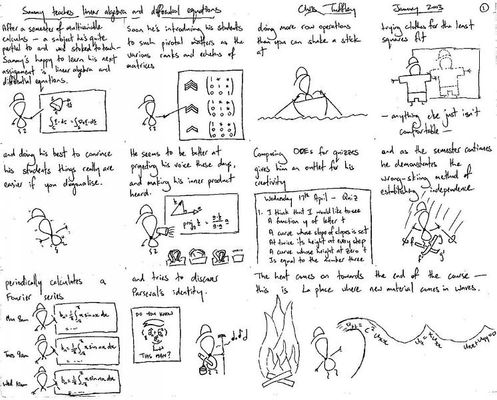 Sammy teaches linear algebra and differential equations
Chris Tuffley
January 2003
1
After a semester of multivariable
calculus – a subject he's quite
partial to and and itched to teach –
Sammy's happy to learn his next
assignment is linear algebra and
differential equations.
Soon he's introducing his students
to such pivotal matters as the
various ranks and echelons of
matrices
doing more row operations
than you can shake a stick
at
trying clothes for the least
squares fit
– anything else just isn't
comfortable –
and doing his best to convince
his students things really are
easier if you diagonalise.
He seems to be better at
projecting his voice these days,
and making his inner product
heard.
Composing ODEs for quizzes
gives him an outlet for his
creativity
Wednesday 17th April - Quiz
1. I think that I would like to see
A function y of letter t
A curve whose slope of slopes is set
At twice its height at every step
A curve whose height at zero t
Is equal to the number three
and as the semester continues
he demonstrates the
wrong-skiing method of
establishing independence
periodically calculates a
Fourier series
Mon 9am
Tues 9am
Wed 10am
and tries to discover
Parseval's identity.
DO YOU KNOW
THIS MAN?
The heat comes on towards the end of the course —
this is La place where new material comes in waves.